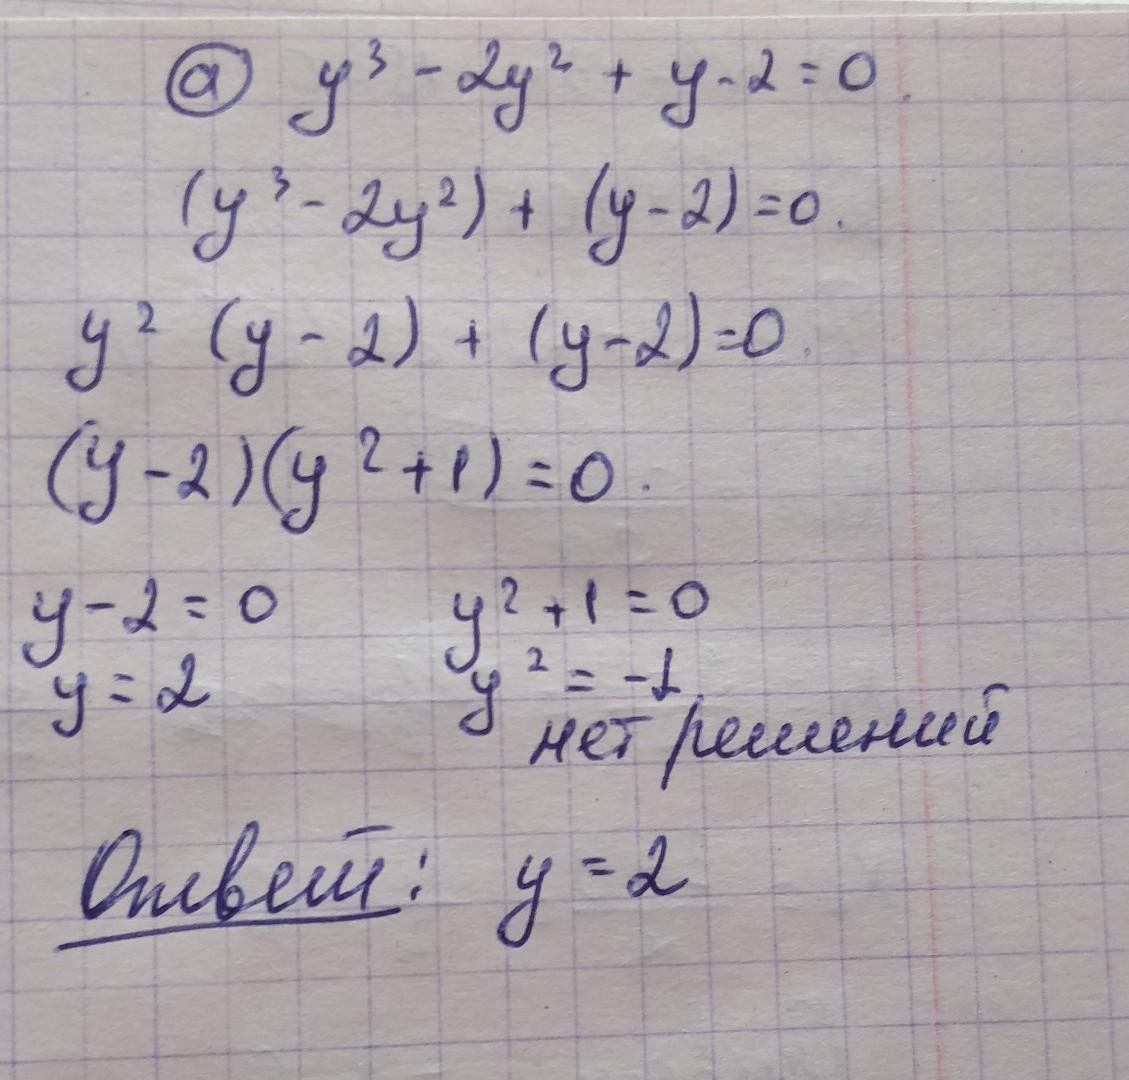 а) y³ - 2y² + y - 2 = 0.
(y³ - 2y²) + (y - 2) = 0.
y² (y - 2) + (y - 2) = 0.
(y - 2)(y² + 1) = 0.
y - 2 = 0 y² + 1 = 0
y = 2 y² = -1
нет решений
Ответ: y = 2